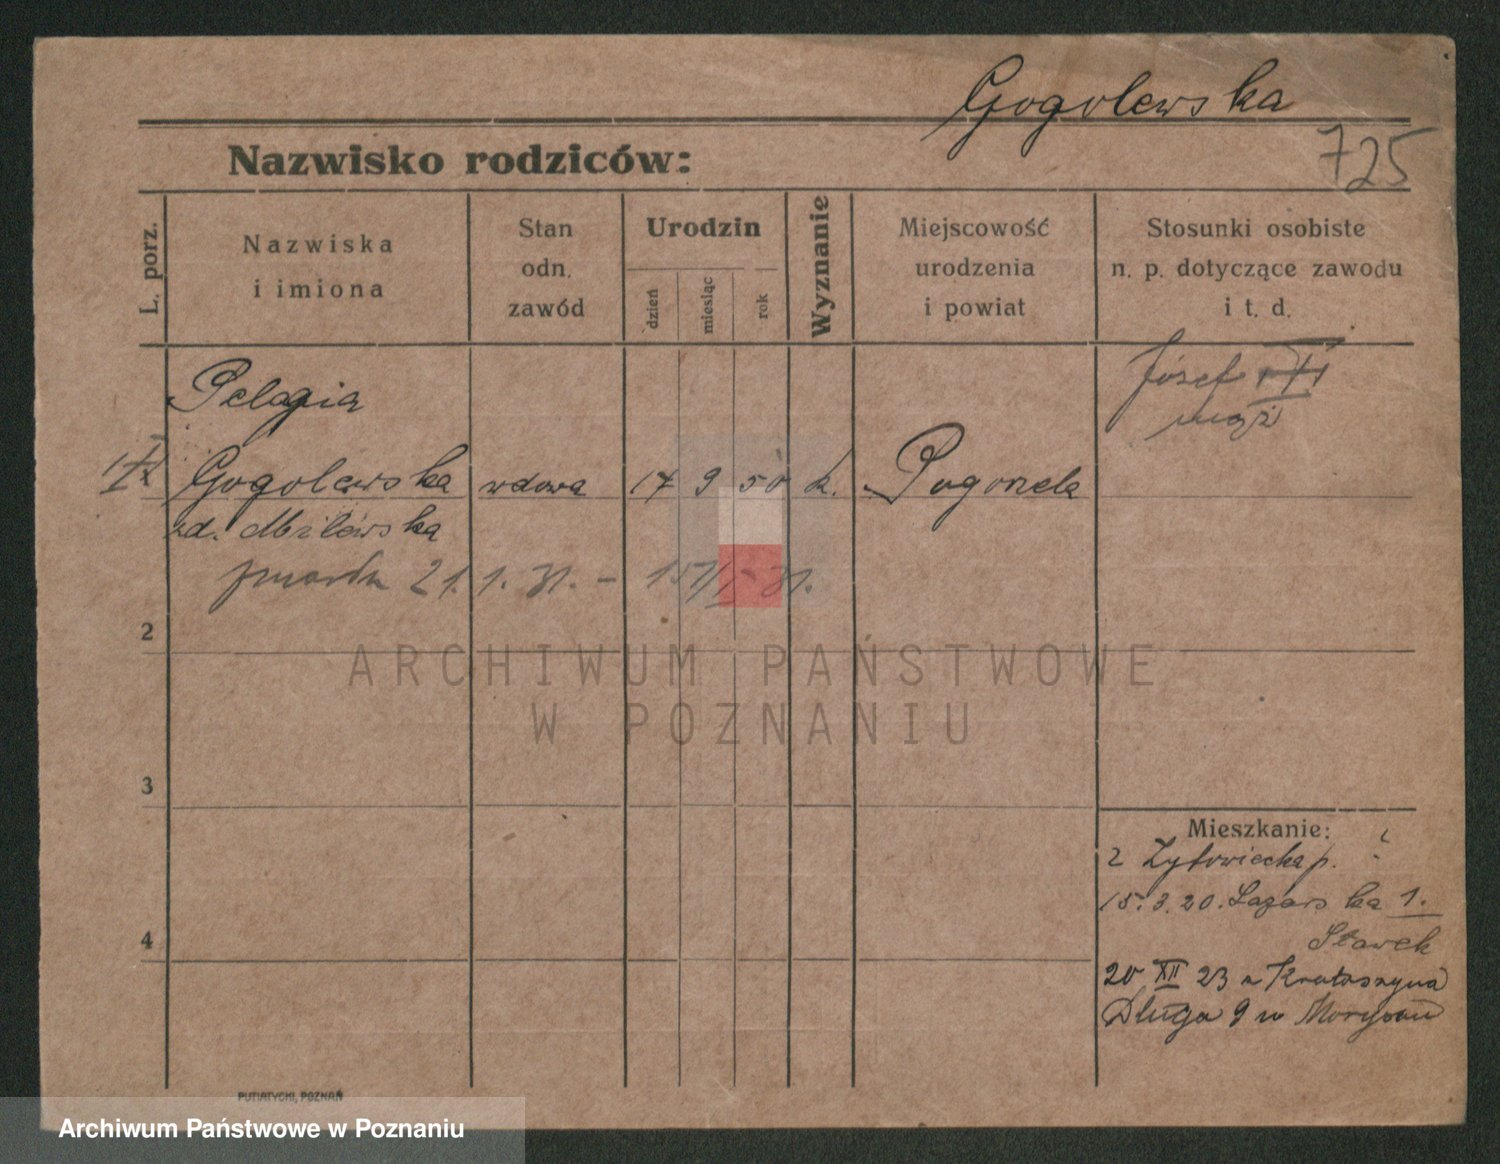 Gogolewska
725
Nazwisko rodziców:
L. porz.
Nazwiska
i imiona
Stan
odn.
zawód
Urodzin
dzień
miesiąc
rok
Wyznanie
Miejscowość
urodzenia
i powiat
Stosunki osobiste
n. p. dotyczące zawodu
i t. d.
Pelagia
Józef
mąż
Gogolewska wdowa 17 9 50 k. Pogorzela
zd. Milewska
zmarła 21. 1. 31.
2
ARCHIWUM PAŃSTWOWE
W POZNANIU
3
Mieszkanie:
2 Żytowiecka p.
15. 3. 20. Łazarska 1.
Sławek
4
20 XII 23 z Krotoszyna
Długa 9 u
PUTIATYCKI, POZNAŃ
Archiwum Państwowe w Poznaniu